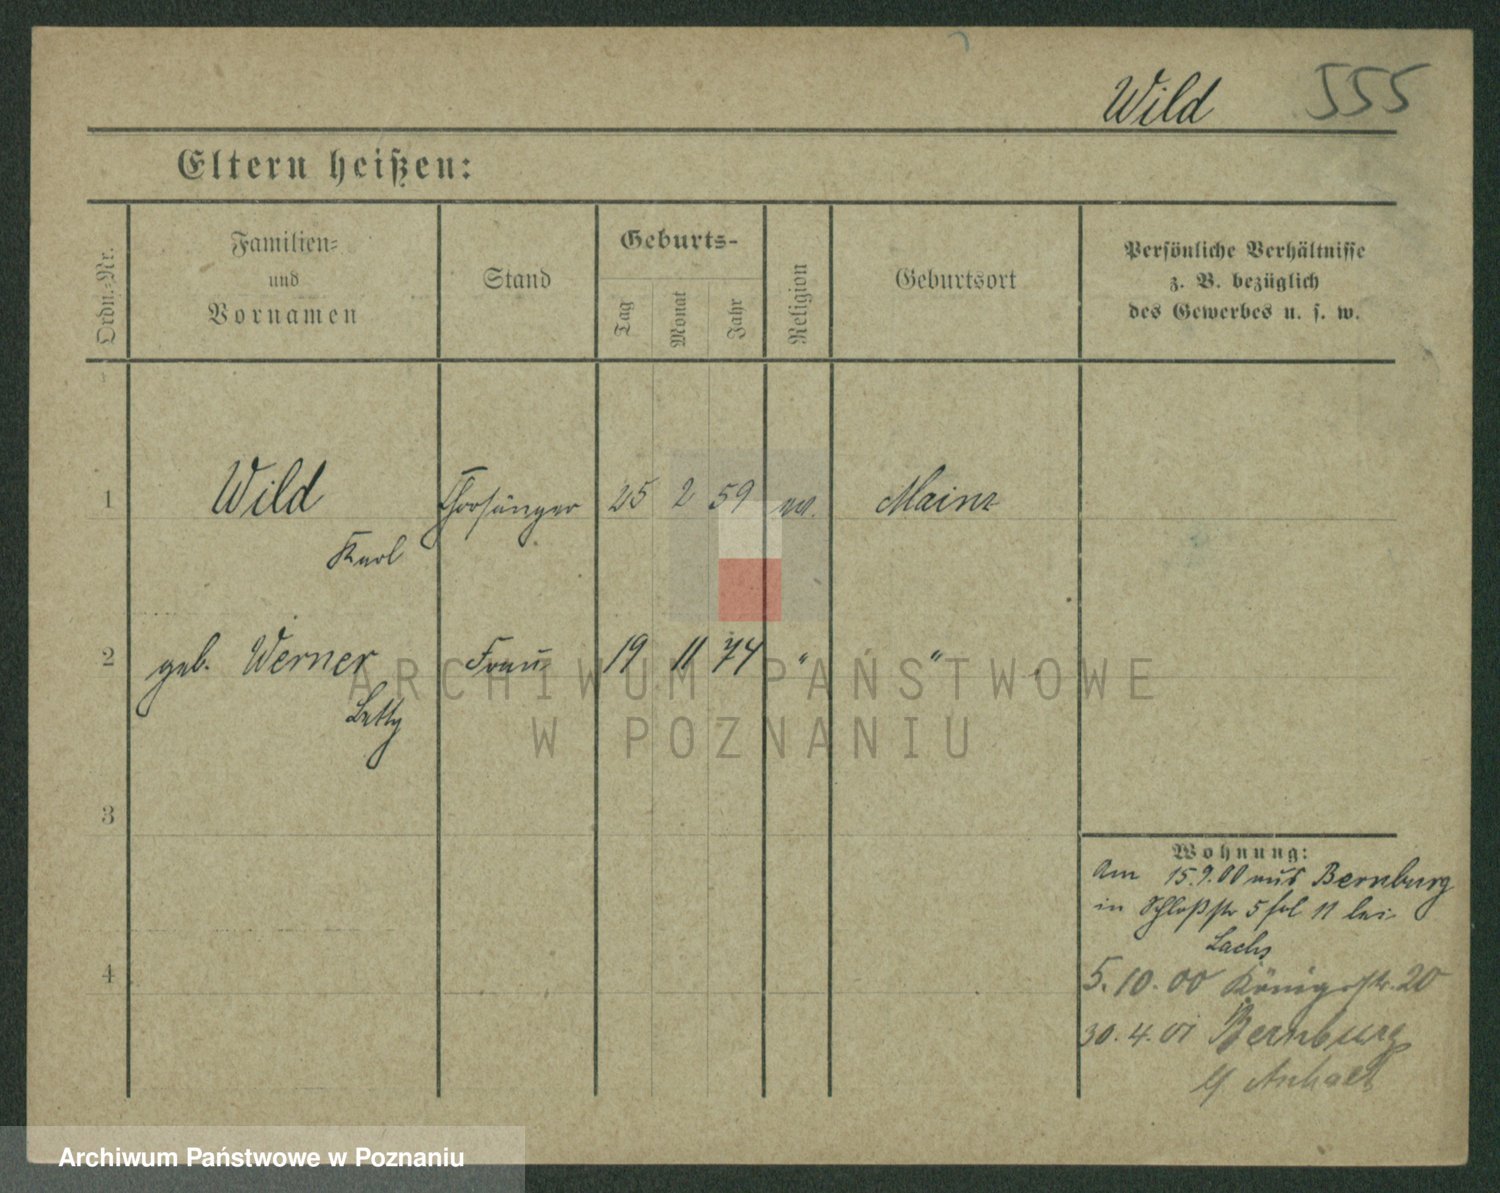 Wild 555
Eltern heißen:
Ordn.-Nr.
Familien-
und
Vornamen
Stand
Geburts-
Tag
Monat
Jahr
Religion
Geburtsort
Persönliche Verhältnisse
z. B. bezüglich
des Gewerbes u. s. w.
1 Wild Chorsänger 25 2 59 Mainz
Karl
2 geb. Werner Frau 19 11 74 " "
Betty
3
4
Wohnung:
Am 15.9.00 aus Bernburg
in Schloßstr 5 11 bei
Lachs
5.10.00 Königsstr. 20
30.4.01 Bernburg
Anhalt
ARCHIWUM PAŃSTWOWE
W POZNANIU
Archiwum Państwowe w Poznaniu